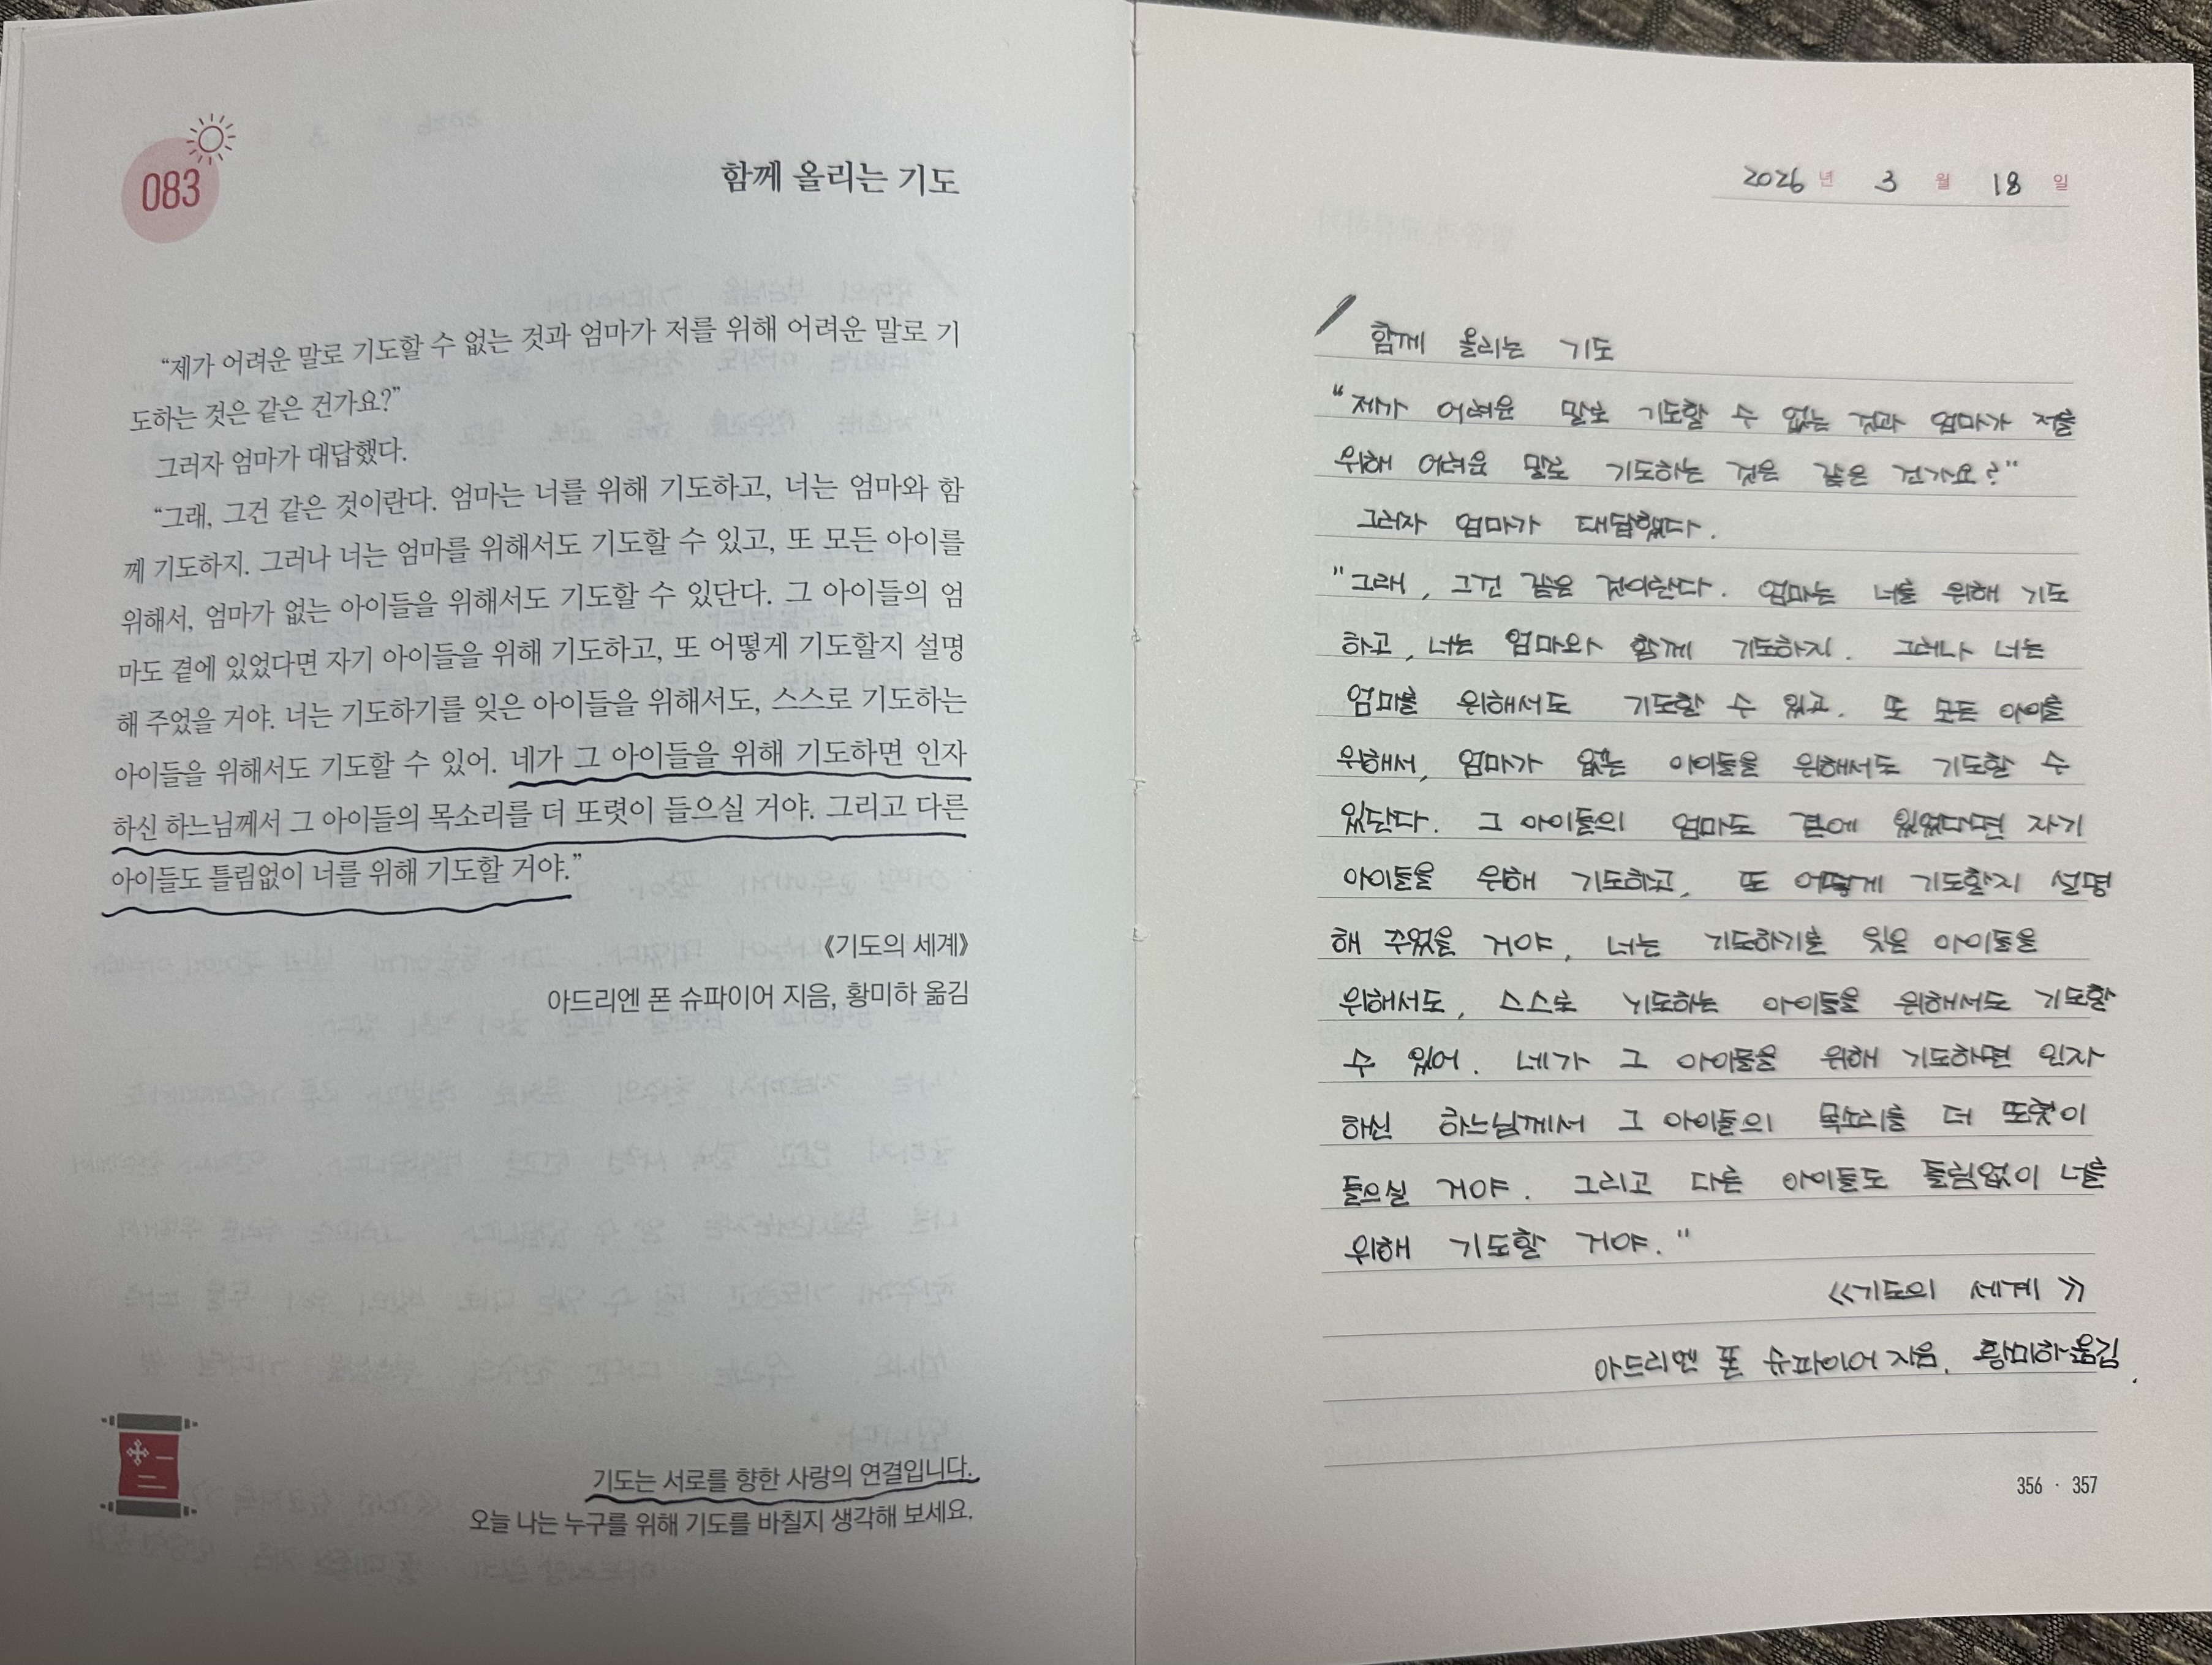 083
함께 올리는 기도
“제가 어려운 말로 기도할 수 없는 것과 엄마가 저를 위해 어려운 말로 기
도하는 것은 같은 건가요?”
그러자 엄마가 대답했다.
“그래, 그건 같은 것이란다. 엄마는 너를 위해 기도하고, 너는 엄마와 함
께 기도하지. 그러나 너는 엄마를 위해서도 기도할 수 있고, 또 모든 아이를
위해서, 엄마가 없는 아이들을 위해서도 기도할 수 있단다. 그 아이들의 엄
마도 곁에 있었다면 자기 아이들을 위해 기도하고, 또 어떻게 기도할지 설명
해 주었을 거야. 너는 기도하기를 잊은 아이들을 위해서도, 스스로 기도하는
아이들을 위해서도 기도할 수 있어. 네가 그 아이들을 위해 기도하면 인자
하신 하느님께서 그 아이들의 목소리를 더 또렷이 들으실 거야. 그리고 다른
아이들도 틀림없이 너를 위해 기도할 거야.”
《기도의 세계》
아드리엔 폰 슈파이어 지음, 황미하 옮김
기도는 서로를 향한 사랑의 연결입니다.
오늘 나는 누구를 위해 기도를 바칠지 생각해 보세요.
2026 년 3 월 18 일
함께 올리는 기도
“제가 어려운 말로 기도할 수 없는 것과 엄마가 저를
위해 어려운 말로 기도하는 것은 같은 건가요?"
그러자 엄마가 대답했다.
"그래, 그건 같은 것이란다. 엄마는 너를 위해 기도
하고, 너는 엄마와 함께 기도하지. 그러나 너는
엄마를 위해서도 기도할 수 있고, 또 모든 아이를
위해서, 엄마가 없는 아이들을 위해서도 기도할 수
있단다. 그 아이들의 엄마도 곁에 있었다면 자기
아이들을 위해 기도하고, 또 어떻게 기도할지 설명
해 주었을 거야, 너는 기도하기를 잊은 아이들을
위해서도, 스스로 기도하는 아이들을 위해서도 기도할
수 있어. 네가 그 아이들을 위해 기도하면 인자
하신 하느님께서 그 아이들의 목소리를 더 또렷이
들으실 거야. 그리고 다른 아이들도 틀림없이 너를
위해 기도할 거야."
《기도의 세계》
아드리엔 폰 슈파이어 지음, 황미하 옮김.
356 · 357